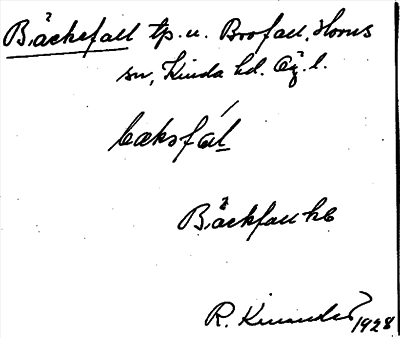 Bäcksfall tp. u. Brofall, Horns
sn, Kinda hd. Ög. l.
bæksfál
Bäckfall hb
R. 1928